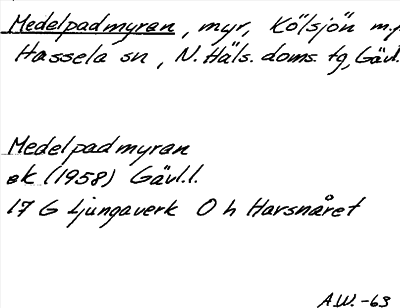 Medelpadmyran, myr, Kölsjön m.fl.
Hassela sn, N. Häls. doms. tg, Gävl.
Medelpadmyran
ek (1958) Gävl.l.
17 G Ljungaverk O h Harsnåret
A.W. -63